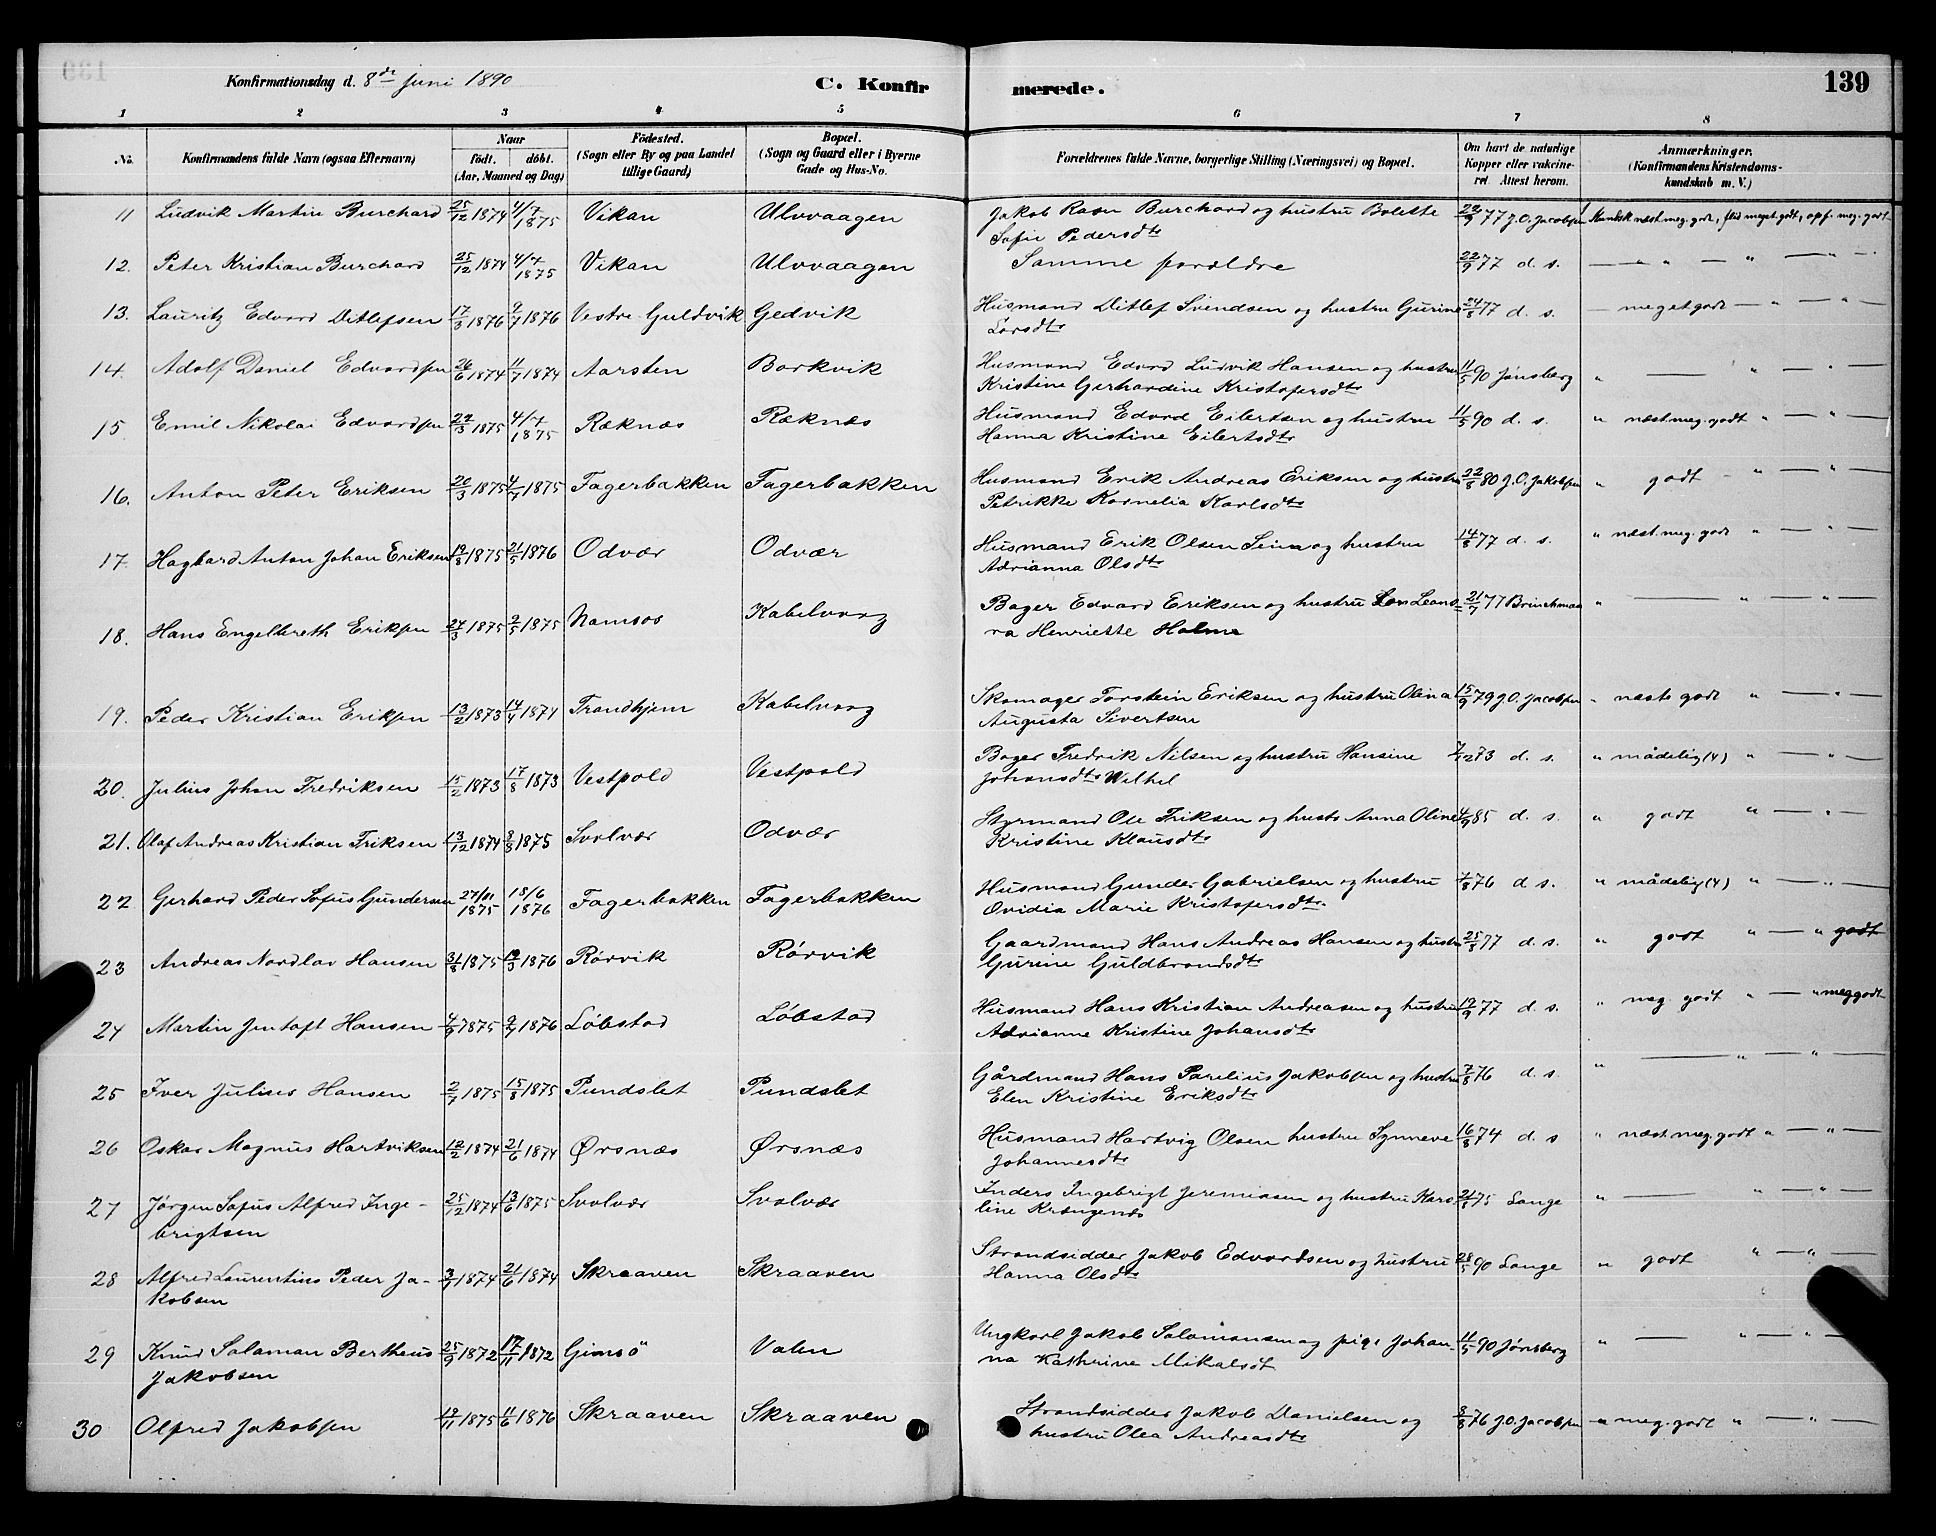 139
Konfirmationsdag d. 8de Juni 1890
C. Konfirmerede.
1 2 3 4 5 6 7 8
No.
Konfirmandens fulde Navn (ogsaa Efternavn)
Naar
födt. döbt.
(Aar, Maaned og Dag)
Födested.
(Sogn eller By og paa Landet
tillige Gaard)
Bopæl.
(Sogn og Gaard eller i Byerne
Gade og Hus-No.
Forældrenes fulde Navne, borgerlige Stilling (Næringsvei) og Bopæl.
Om havt de naturlige
Kopper eller vakcineret.
Attest herom.
Anmærkninger.
(Konfirmandens Kristendomskundskab
m. V.)
11 Ludvik Martin Burchard 25/12 1874 4/7 1875 Vikan Ulvvaagen Jakob Rasn Burchard og hustru Bolette 22/9 77 J.O. Jacobsen Kundsk næst meg. godt, flid meget godt, opf. meg. godt
Sofie Pedersdtr
12. Peter Kristian Burchard 25/12 1874 4/7 1875 Vikan Ulvvaagen Samme forældre 22/9 77 d. s. — " — " — " —
13. Lauritz Edvard Ditlefsen 17/3 1876 9/7 1876 Vestre Guldvik Gedvik Husmand Ditlef Svendsen og hustru Gurine 24/8 77 d. s. — meget godt — " — " —
Larsdtr
14. Adolf Daniel Edvardsen 26/6 1874 11/7 1874 Aarsten Borkvik Husmand Edvard Ludvik Hansen og hustru 11/5 90 Jønsberg " — " — " —
Kristine Gerhardine Kristofersdtr
15. Emil Nikolai Edvardsen 22/3 1875 4/7 1875 Ræknæs Ræknæs Husmand Edvard Eilertsen og hustru 11/5 90 d. s. " næst. meg. godt " — " —
Hanna Kristine Eilertsdtr
16. Anton Peter Eriksen 20/3 1875 4/7 1875 Fagerbakken Fagerbakken Husmand Erik Andreas Eriksen og hustru 22/8 80 J.O. Jakobsen " godt — " — " —
Petrikke Kornelia Karlsdtr
17. Hagbard Anton Johan Eriksen 19/8 1875 21/5 1876 Odvær Odvær Husmand Erik Olsen Seina og hustru 14/8 77 d. s. " næst. meg. godt " — " —
Adrianna Olsdtr
18. Hans Engelbreth Eriksen 24/3 1875 2/5 1875 Namsos Kabelvaag Bager Edvard Eriksen og hustru Leono= 21/7 77 Brinchman " — " — " —
ra Henriette Holme
19. Peder Kristian Eriksen 13/2 1873 14/4 1874 Trondhjem Kabelvaag Skomager Torstein Eriksen og hustru Olina 15/9 79 J.O. Jacobsen " næsts godt " — " —
Augusta Sivertsen
20. Julius Johan Fredriksen 15/2 1873 17/8 1873 Vestpold Vestpold Bager Fredrik Nilsen og hustru Hansine 7/12 73 d. s. " mådelig (4) " — " —
Johansdtr Welhel
21. Olaf Andreas Kristian Friksen 13/12 1874 8/8 1875 Svolvær Odvær Styrmand Ole Friksen og hustr Anna Oline 4/9 85 d. s. " godt " — " —
Kristine Klausdtr
22 Gerhard Peder Sofus Gundersen 27/11 1875 18/6 1876 Fagerbakken Fagerbakken Husmand Gunder Gabrielsen og hustru 7/8 76 d s. " mådelig (4) " — " —
Ovidia Marie Kristofersdtr.
23 Andreas Nordlav Hansen 31/8 1875 19/3 1876 Rörvik Rörvik Gaardmand Hans Andreas Hansen og hustru 25/8 77 d. s. " godt " — " godt
Gurine Guldbrandsdtr
24 Martin Jentoft Hansen 4/9 1875 9/7 1876 Löbstad Löbstad Husmand Hans Kristian Andreasen og hustru 19/9 77 d. s. " meg. godt " — " meg godt
Adrianne Kristine Johansdtr
25 Iver Julius Hansen 2/7 1875 15/8 1875 Pundslet Pundslet Gårdmand Hans Parelius Jakobsen og hustru 7/8 76 d. s. " — " — " —
Elen Kristine Eriksdtr
26 Oskar Magnus Hartviksen 12/2 1874 21/6 1874 Ørsnæs Ørsnæs Husmand Hartvig Olsen hustru Synneve 16/8 74 d. s " næst. meg. godt " — " —
Johannesdtr
27 Jørgen Sofus Alfred Inge- 25/12 1874 13/6 1875 Svolvær Svolvær Inders Ingebrigt Jeremiasen og hustru Karo- 21/8 75 Lange " — " — " —
brigtsen line Krængenes
28 Alfred Laurentius Peder Ja- 3/7 1874 21/6 1874 Skraaven Skraaven Strandsidder Jakob Edvardsen og hustru 28/5 90 Lange " godt " — " —
kobsen Hanna Olsdtr
29 Knud Salamon Bertheus 25/9 1872 17/11 1872 Gimsö Valen Ungkarl Jakob Salamonsen og pige Johan- 11/5 90 Jønsberg " — " — " —
Jakobsen na Kathrine Mikalsdt
30 Olfred Jakobsen 19/11 1875 11/6 1876 Skraaven Skraaven Strandsidder Jakob Danielsen og 8/8 76 J.O. Jacobsen " meg. godt " — " —
hustru Olea Andreasdtr